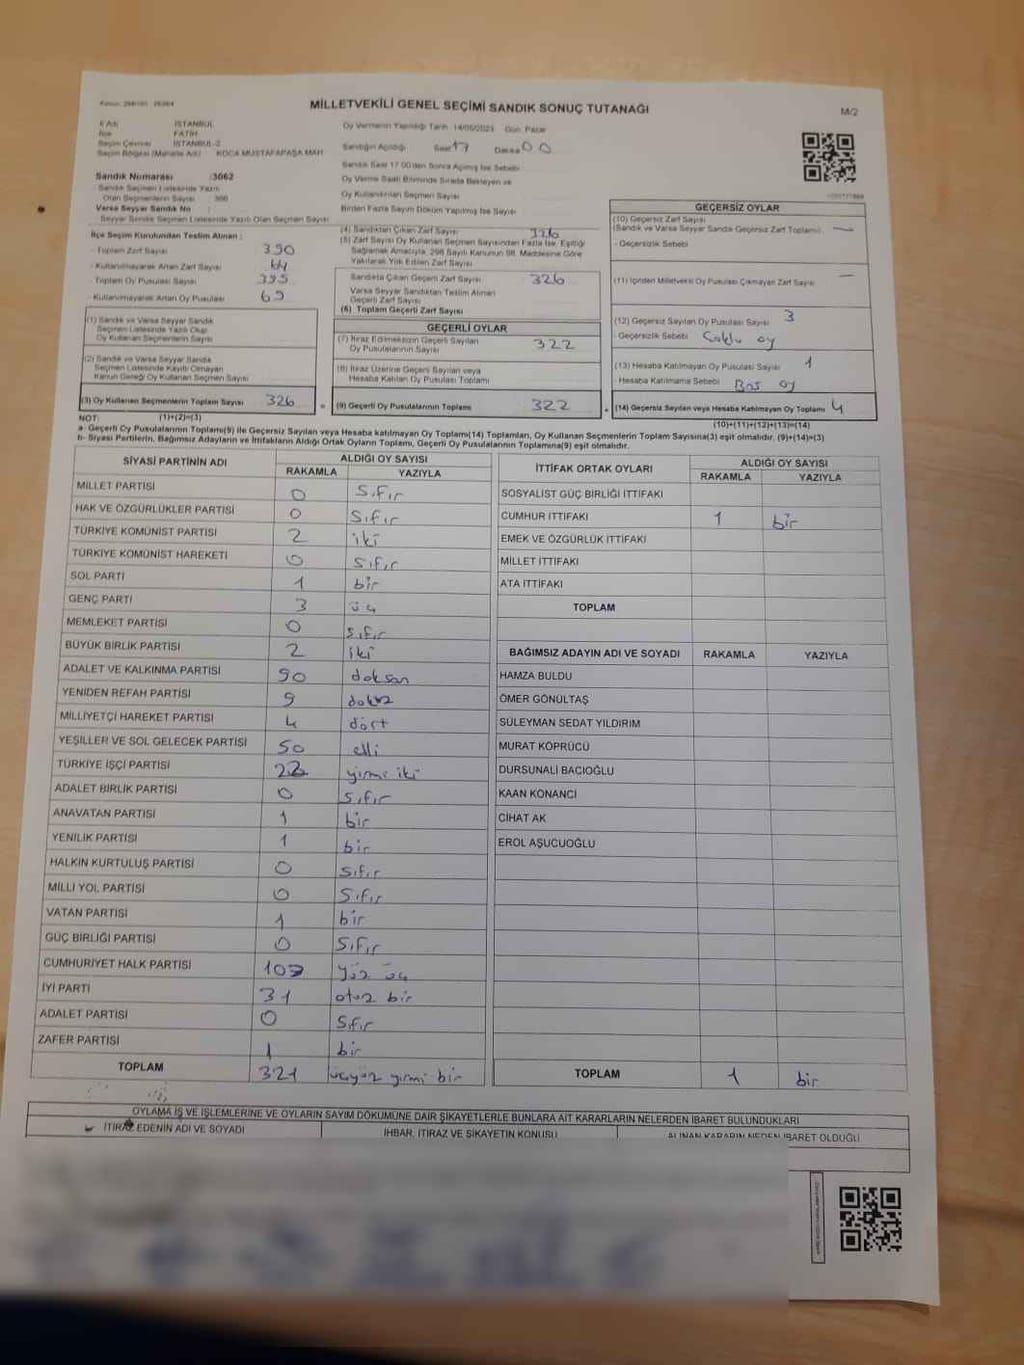 MİLLETVEKİLİ GENEL SEÇİMİ SANDIK SONUÇ TUTANAĞI
M/2
İl Adı İSTANBUL
İlçe FATİH
Seçim Çevresi İSTANBUL-2
Seçim Bölgesi (Mahalle Adı) KOCA MUSTAFAPAŞA MAH
Sandık Numarası :3062
Sandık Seçmen Listesinde Yazılı
Olan Seçmenlerin Sayısı
Varsa Seyyar Sandık No :
Seyyar Sandık Seçmen Listesinde Yazılı Olan Seçmen Sayısı
Oy Vermenin Yapıldığı Tarih 14/05/2023 Gün Pazar
Sandığın Açıldığı Saat 17 Dakika 00
Sandık Saat 17.00'den Sonra Açılmış İse Sebebi
Oy Verme Saati Bitiminde Sırada Bekleyen ve
Oy Kullandırılan Seçmen Sayısı
Birden Fazla Sayım Döküm Yapılmış İse Sayısı
İlçe Seçim Kurulundan Teslim Alınan :
- Toplam Zarf Sayısı 390
- Kullanılmayarak Artan Zarf Sayısı 64
- Toplam Oy Pusulası Sayısı 395
- Kullanılmayarak Artan Oy Pusulası 69
(1) Sandık ve Varsa Seyyar Sandık
Seçmen Listesinde Yazılı Olup
Oy Kullanan Seçmenlerin Sayısı
(2) Sandık ve Varsa Seyyar Sandık
Seçmen Listesinde Kayıtlı Olmayan
Kanun Gereği Oy Kullanan Seçmen Sayısı
(3) Oy Kullanan Seçmenlerin Toplam Sayısı 326
(4) Sandıktan Çıkan Zarf Sayısı 326
(5) Zarf Sayısı Oy Kullanan Seçmen Sayısından Fazla İse, Eşitliği
Sağlamak Amacıyla, 298 Sayılı Kanunun 98. Maddesine Göre
Yakılarak Yok Edilen Zarf Sayısı
Sandıkta Çıkan Geçerli Zarf Sayısı 326
Varsa Seyyar Sandıktan Teslim Alınan
Geçerli Zarf Sayısı
(6) Toplam Geçerli Zarf Sayısı
GEÇERLİ OYLAR
(7) İtiraz Edilmeksizin Geçerli Sayılan
Oy Pusulalarının Sayısı 322
(8) İtiraz Üzerine Geçerli Sayılan veya
Hesaba Katılan Oy Pusulası Toplamı
= (9) Geçerli Oy Pusulalarının Toplamı 322
GEÇERSİZ OYLAR
(10) Geçersiz Zarf Sayısı
(Sandık ve Varsa Seyyar Sandık Geçersiz Zarf Toplamı) —
- Geçersizlik Sebebi
(11) İçinden Milletvekili Oy Pusulası Çıkmayan Zarf Sayısı —
(12) Geçersiz Sayılan Oy Pusulası Sayısı 3
- Geçersizlik Sebebi Çoklu oy
(13) Hesaba Katılmayan Oy Pusulası Sayısı 1
Hesaba Katılmama Sebebi Boş oy
+ (14) Geçersiz Sayılan veya Hesaba Katılmayan Oy Toplamı 4
NOT: (1)+(2)=(3) (10)+(11)+(12)+(13)=(14)
a- Geçerli Oy Pusulalarının Toplamı(9) ile Geçersiz Sayılan veya Hesaba katılmayan Oy Toplamı(14) Toplamları, Oy Kullanan Seçmenlerin Toplam Sayısına(3) eşit olmalıdır. (9)+(14)=(3)
b- Siyasi Partilerin, Bağımsız Adayların ve İttifakların Aldığı Ortak Oyların Toplamı, Geçerli Oy Pusulalarının Toplamına(9) eşit olmalıdır.
SİYASİ PARTİNİN ADI ALDIĞI OY SAYISI
RAKAMLA YAZIYLA
MİLLET PARTİSİ 0 Sıfır
HAK VE ÖZGÜRLÜKLER PARTİSİ 0 Sıfır
TÜRKİYE KOMÜNİST PARTİSİ 2 iki
TÜRKİYE KOMÜNİST HAREKETİ 0 sıfır
SOL PARTİ 1 bir
GENÇ PARTİ 3 üç
MEMLEKET PARTİSİ 0 sıfır
BÜYÜK BİRLİK PARTİSİ 2 iki
ADALET VE KALKINMA PARTİSİ 90 doksan
YENİDEN REFAH PARTİSİ 9 dokuz
MİLLİYETÇİ HAREKET PARTİSİ 4 dört
YEŞİLLER VE SOL GELECEK PARTİSİ 50 elli
TÜRKİYE İŞÇİ PARTİSİ 22 yirmi iki
ADALET BİRLİK PARTİSİ 0 sıfır
ANAVATAN PARTİSİ 1 bir
YENİLİK PARTİSİ 1 bir
HALKIN KURTULUŞ PARTİSİ 0 sıfır
MİLLİ YOL PARTİSİ 0 Sıfır
VATAN PARTİSİ 1 bir
GÜÇ BİRLİĞİ PARTİSİ 0 Sıfır
CUMHURİYET HALK PARTİSİ 103 yüz üç
İYİ PARTİ 31 otuz bir
ADALET PARTİSİ 0 Sıfır
ZAFER PARTİSİ 1 bir
TOPLAM 321 üçyüz yirmi bir
İTTİFAK ORTAK OYLARI ALDIĞI OY SAYISI
RAKAMLA YAZIYLA
SOSYALİST GÜÇ BİRLİĞİ İTTİFAKI
CUMHUR İTTİFAKI 1 bir
EMEK VE ÖZGÜRLÜK İTTİFAKI
MİLLET İTTİFAKI
ATA İTTİFAKI
TOPLAM
BAĞIMSIZ ADAYIN ADI VE SOYADI RAKAMLA YAZIYLA
HAMZA BULDU
ÖMER GÖNÜLTAŞ
SÜLEYMAN SEDAT YILDIRIM
MURAT KÖPRÜCÜ
DURSUNALİ BACIOĞLU
KAAN KONANCI
CİHAT AK
EROL AŞUCUOĞLU
TOPLAM 1 bir
OYLAMA İŞ VE İŞLEMLERİNE VE OYLARIN SAYIM DÖKÜMÜNE DAİR ŞİKAYETLERLE BUNLARA AİT KARARLARIN NELERDEN İBARET BULUNDUKLARI
İTİRAZ EDENİN ADI VE SOYADI İHBAR, İTİRAZ VE ŞİKAYETİN KONUSU ALINAN KARARIN NEDEN İBARET OLDUĞU